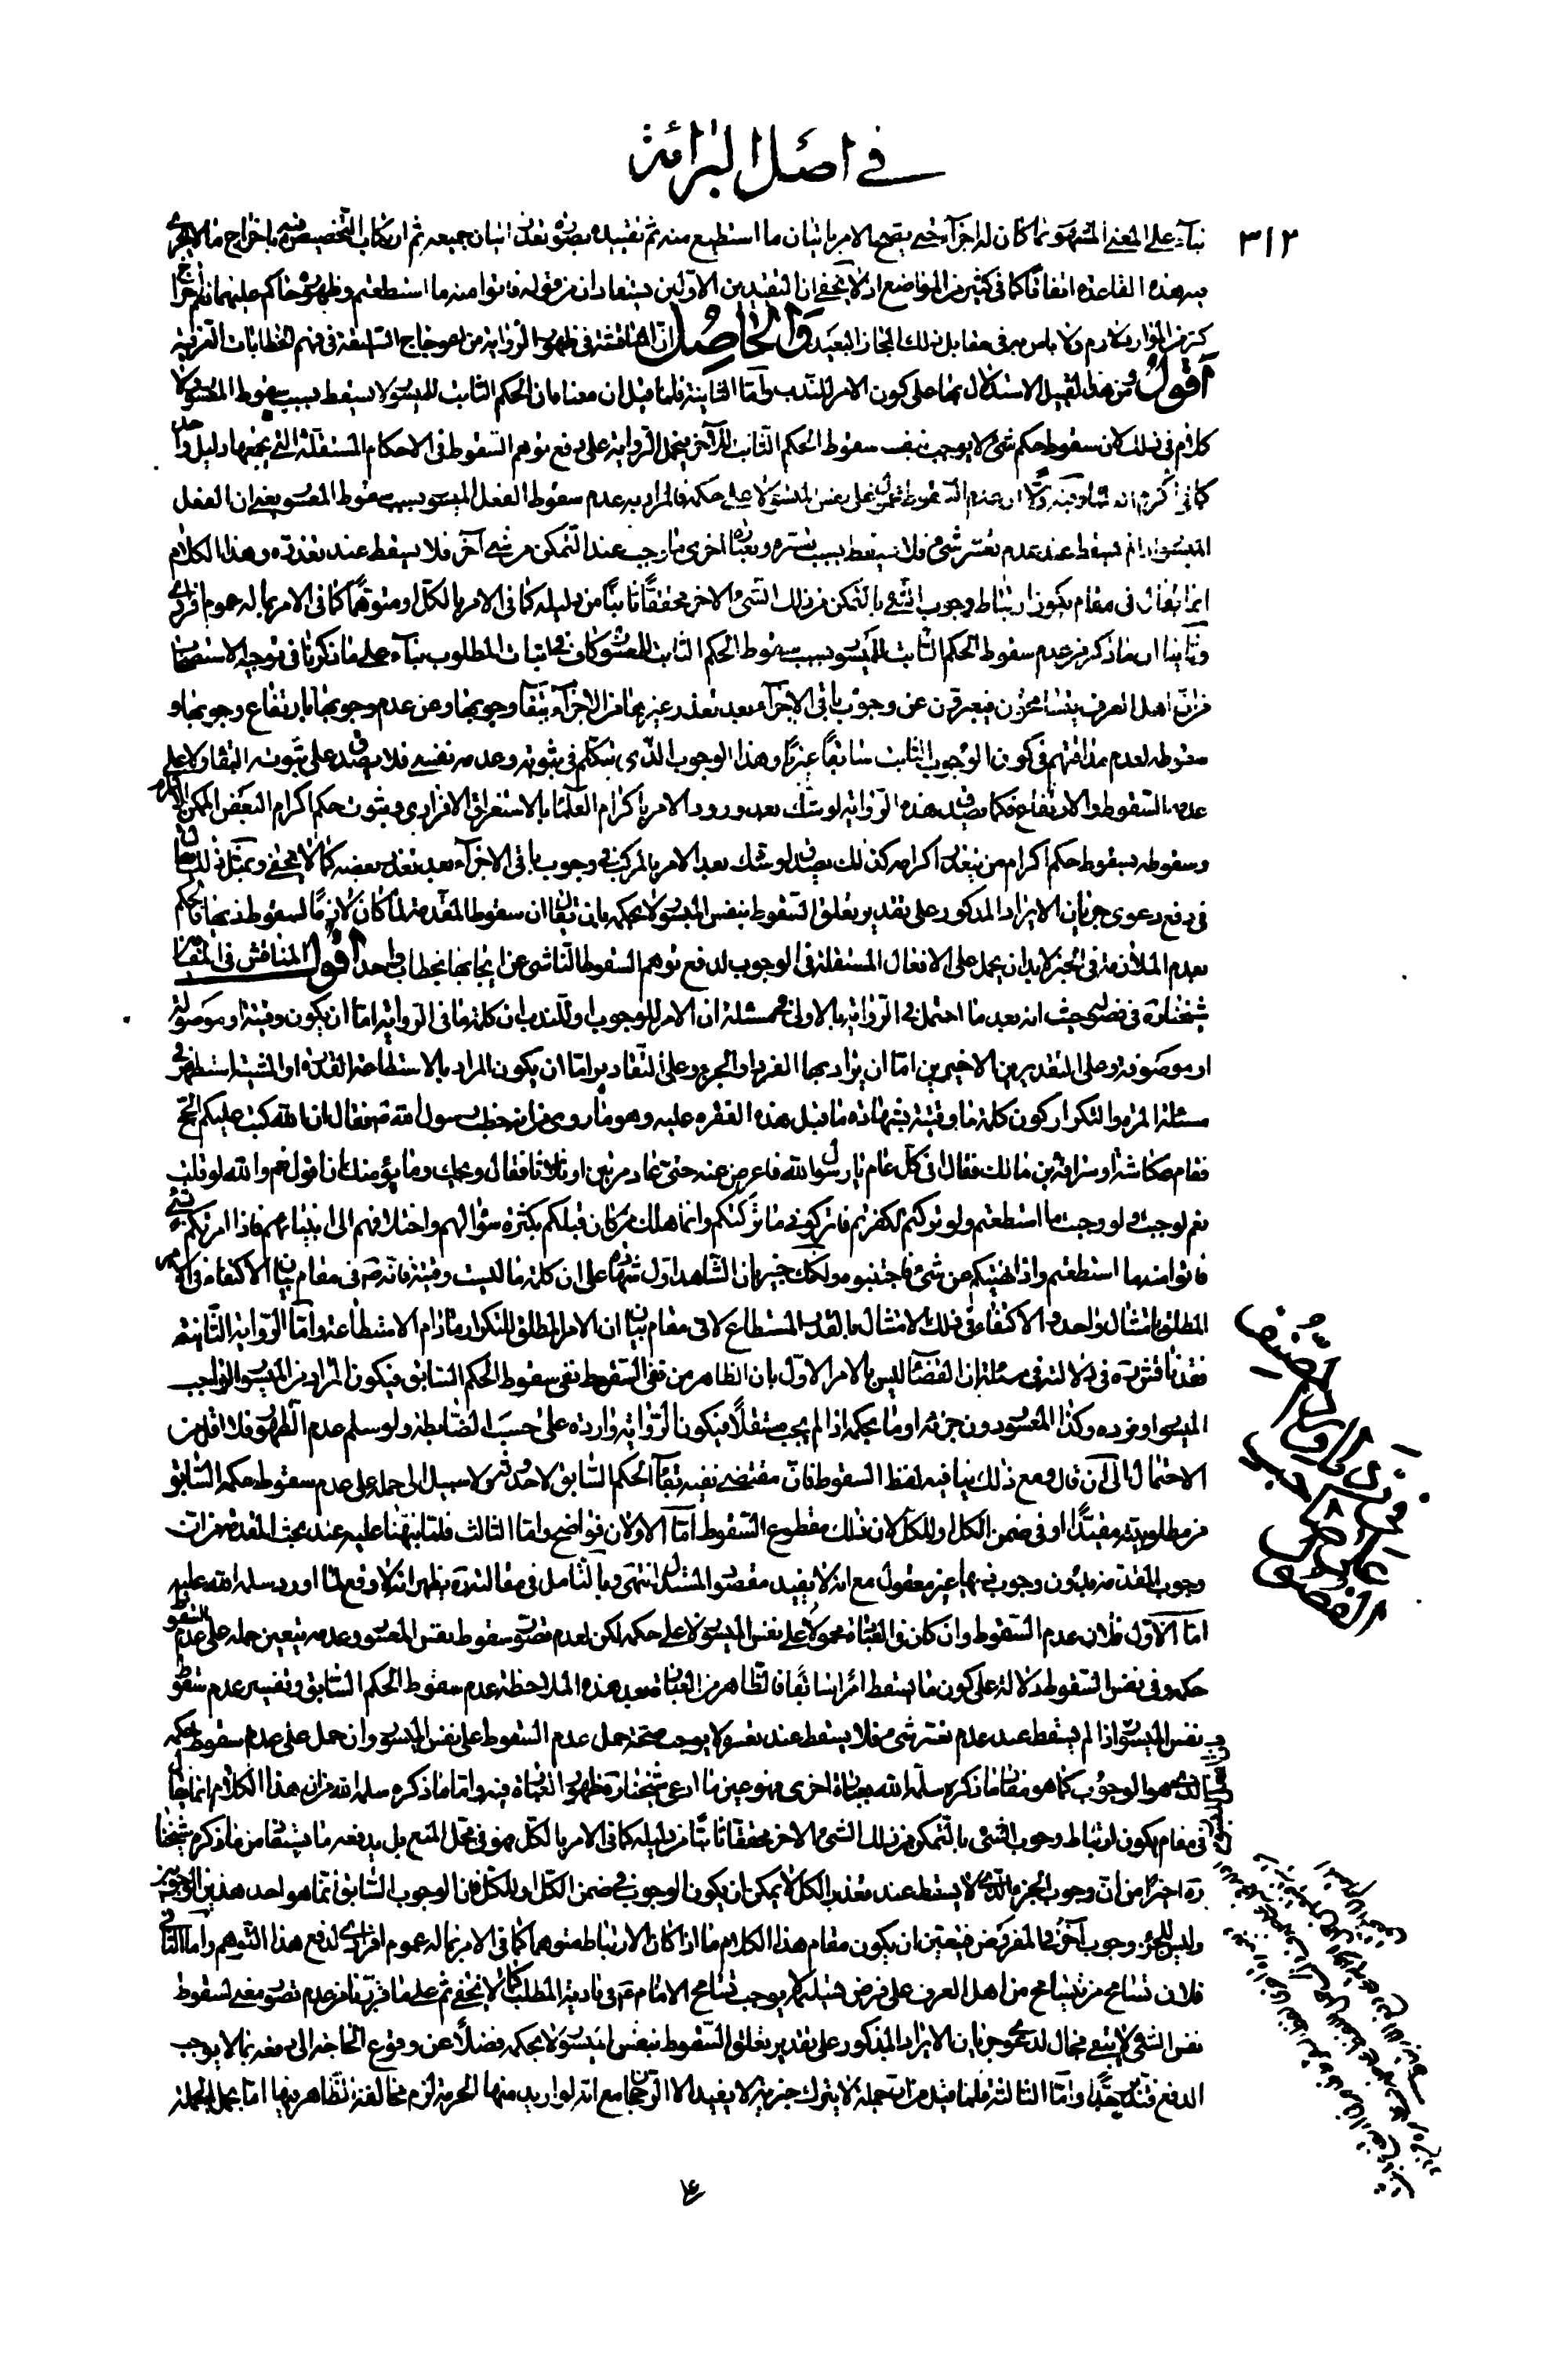 في اصل البرائة
٣١٢
بناء على المعنى المشهور ما كان له اجزاء حتى يصح الامر باتيان ما استطيع منه ثم تقييده بصورة تعذر اتيان جميعه ثم ارتكاب التخصيص فيه باخراج ما لا يجرى
فيه هذه القاعدة اتفاقا كما في كثير من المواضع اذ لا يخفى ان التقييدين الاولين يستفادان من قوله فاتوا منه ما استطعتم وظهوره حاكم عليهما نعم اخراج
كثير من الموارد لازم ولا باس به في مقابل ذلك المجاز البعيد والحاصل ان المناقشة في ظهور الرواية من اعوجاج السليقة في فهم الخطابات العرفية
اقول ومن هذا القبيل الاستدلال بها على كون الامر للندب واما الثانية فلما قيل ان معناه ان الحكم الثابت للميسور لا يسقط بسبب سقوط المعسور ولا
كلام في ذلك لان سقوط حكم شئ لا يوجب بنفسه سقوط الحكم الثابت للآخر فتحمل الرواية على دفع توهم السقوط في الاحكام المستقلة التي يجمعها دليل واحد
كما في اكرم العلماء وفيه اولا ان عدم السقوط محمول على نفس الميسور لا على حكمه فالمراد به عدم سقوط الفعل الميسور بسبب سقوط المعسور يعنى ان الفعل
الميسور اذا لم يسقط عند عدم تعسر شئ فلا يسقط بسبب تعسره وبعبارة اخرى ما وجب عند التمكن من شئ آخر فلا يسقط عند تعذره وهذا الكلام
انما يقال في مقام يكون ارتباط وجوب الشئ بالتمكن من ذلك الشئ الاخر محققا ثابتا من دليله كما في الامر بالكل او متوهما كما في الامر بما له عموم افرادى
وثانيا ان ما ذكر من عدم سقوط الحكم الثابت للميسور بسبب سقوط الحكم الثابت للمعسور كاف في اثبات المطلوب بناء على ما ذكرنا في توجيه الاستصحاب
من ان اهل العرف يتسامحون فيعبرون عن وجوب باقي الاجزاء بعد تعذر غيرها من الاجزاء ببقاء وجوبها وعن عدم وجوبها بارتفاع وجوبها و
سقوطه لعدم مداقتهم في كون الوجوب الثابت سابقا غيريا وهذا الوجوب الذى يتكلم في ثبوته وعدمه نفسى فلا يصدق على ثبوته البقاء ولا على
عدمه السقوط والارتفاع فكما يصدق هذه الرواية لو شك بعد ورود الامر باكرام العلماء بالاستغراق الافرادى في ثبوت حكم اكرام البعض الممكن الاكرام
وسقوطه بسقوط حكم اكرام من يتعذر اكرامه كذلك يصدق لو شك بعد الامر بالمركب في وجوب باقي الاجزاء بعد تعذر بعضه كما لا يخفى وبمثل ذلك يقال
في دفع دعوى جريان الايراد المذكور على تقدير تعلق السقوط بنفس الميسور لا بحكمه بان يقال ان سقوط المقدمة لما كان لازما لسقوط ذيها فالحكم
بعدم الملازمة في الخبر لا بد ان يحمل على الافعال المستقلة في الوجوب لدفع توهم السقوط الناشى عن ايجابها بخطاب واحد اقول المناقش في المقام
شيخنا ره في فصوله حيث انه بعد ما احتمل في الرواية الاولى في مسئلة ان الامر للوجوب او للندب ان كلمة ما في الرواية اما ان يكون وقتية او موصولة
او موصوفة وعلى التقديرين الاخيرين اما ان يراد بها الفرد او الجزء وعلى التقادير اما ان يكون المراد بالاستطاعة القدرة او المشية استظهر في
مسئلة المرة والتكرار كون كلمة ما وقتية بشهادة ما قبل هذه الفقره عليه وهو ما روى من انه خطب رسول الله ص فقال ان الله كتب عليكم الحج
فقام عكاشة او سراقة بن مالك فقال افى كل عام يا رسول الله فاعرض عنه حتى عاد مرتين او ثلاثا فقال ويحك وما يؤمنك ان اقول نعم والله لو قلت
نعم لوجب ولو وجب ما استطعتم ولو تركتم لكفرتم فاتركوني ما تركتكم وانما هلك من كان قبلكم بكثرة سؤالهم واختلافهم الى انبيائهم فاذا امرتكم بشئ
فاتوا منه ما استطعتم واذا نهيتكم عن شئ فاجتنبوه ولكنك خبير بان الشاهد اول شهادة على ان كلمة ما ليست وقتية فانه ص في مقام بيان الاكتفاء في الامر
المطلق بامتثال واحد والاكتفاء في ذلك الامتثال بالقدر المستطاع لا في مقام بيان ان الامر المطلق للتكرار مادام الاستطاعة واما الرواية الثانية
فقد ناقش ره في دلالته في مسئلة ان القضاء ليس بالامر الاول بان الظاهر من نفي السقوط نفي سقوط الحكم السابق فيكون المراد من الميسور الواجب
الميسور او فرده وكذا المعسور دون جزئه او ما بحكمه اذا لم يجب مستقلا فيكون الرواية واردة على حسب الضابطة ولو سلم عدم الظهور فلا اقل من
الاحتمال الى ان قال ومع ذلك ينافيه لفظ السقوط فان مقتضى نفيه بقاء الحكم السابق لا حدوثه ولا سبيل الى حمله على عدم سقوط حكمه السابق
من مطلوبيته مقيدا او في ضمن الكل او للكل لان ذلك مقطوع السقوط اما الاولان فواضح واما الثالث فلما نبهنا عليه عند بحث المقدمة من ان
وجوب المقدمة بدون وجوب ذيها غير معقول مع انه لا يفيد مقصود المستدل انتهى وبالتامل في مقالته ره يظهر انه لا وقع لما اورد سلمه الله عليه
اما الاول فلان عدم السقوط وان كان في العبارة محمولا على نفس الميسور لا على حكمه لكن لعدم تصور سقوط نفس المعسور وعدمه يتعين حمله على عدم السقوط
حكمه وفي نفس السقوط دلالة على كون ما يسقط امرا سابقا فالظاهر من العبارة بعد هذه الملاحظة عدم سقوط الحكم السابق وتفسير عدم سقوط
نفس الميسور اذا لم يسقط عند عدم تعسر شئ فلا يسقط عند تعسره لا يوجب صحة حمل عدم السقوط على نفس الميسور وان حمل على عدم سقوط حكمه
الذى هو الوجوب كما هو مفاد ما ذكره سلمه الله بعبارة اخرى فهو عين ما ادعى شيخنا ره ظهور العبارة فيه واما ما ذكره سلمه الله من ان هذا الكلام انما يقال
في مقام يكون ارتباط وجوب الشئ بالتمكن من ذلك الشئ الاخر محققا ثابتا من دليله كما في الامر بالكل فهو في محل المنع بل يدفعه ما يستفاد من ما ذكره شيخنا
ره اخيرا من ان وجوب الجزء الذى لا يسقط عند تعذر الكل لا يمكن ان يكون الوجوب في ضمن الكل او للكل فان الوجوب السابق انما هو احد هذين الوجهين
وليس للجزء وجوب آخر في المفروض فيتعين ان يكون مقام هذا الكلام ما اذا كان الارتباط متوهما كما في الامر بما له عموم افرادى لدفع هذا التوهم واما الثانى
فلان تسامح من يتسامح من اهل العرف على فرض تسليمه لا يوجب تسامح الامام ع في تادية المطلب كما لا يخفى ثم على ما قررنا من عدم تصور معنى لسقوط
نفس الشئ لا يبقى مجال لدعوى جريان الايراد المذكور على تقدير تعلق السقوط بنفس الميسور لا بحكمه فضلا عن وقوع الحاجة الى دفعه بما لا يوجب
الدفع فتدبر جدا واما الثالثة فلما قيل من ان جملة لا يترك خبرية لا يفيد الا الرجحان مع انه لو اريد منها الحرمة لزم مخالفة الظاهر فيها اما بحمل الجملة
فيما اورد المصنف
على صاحب
الفصول